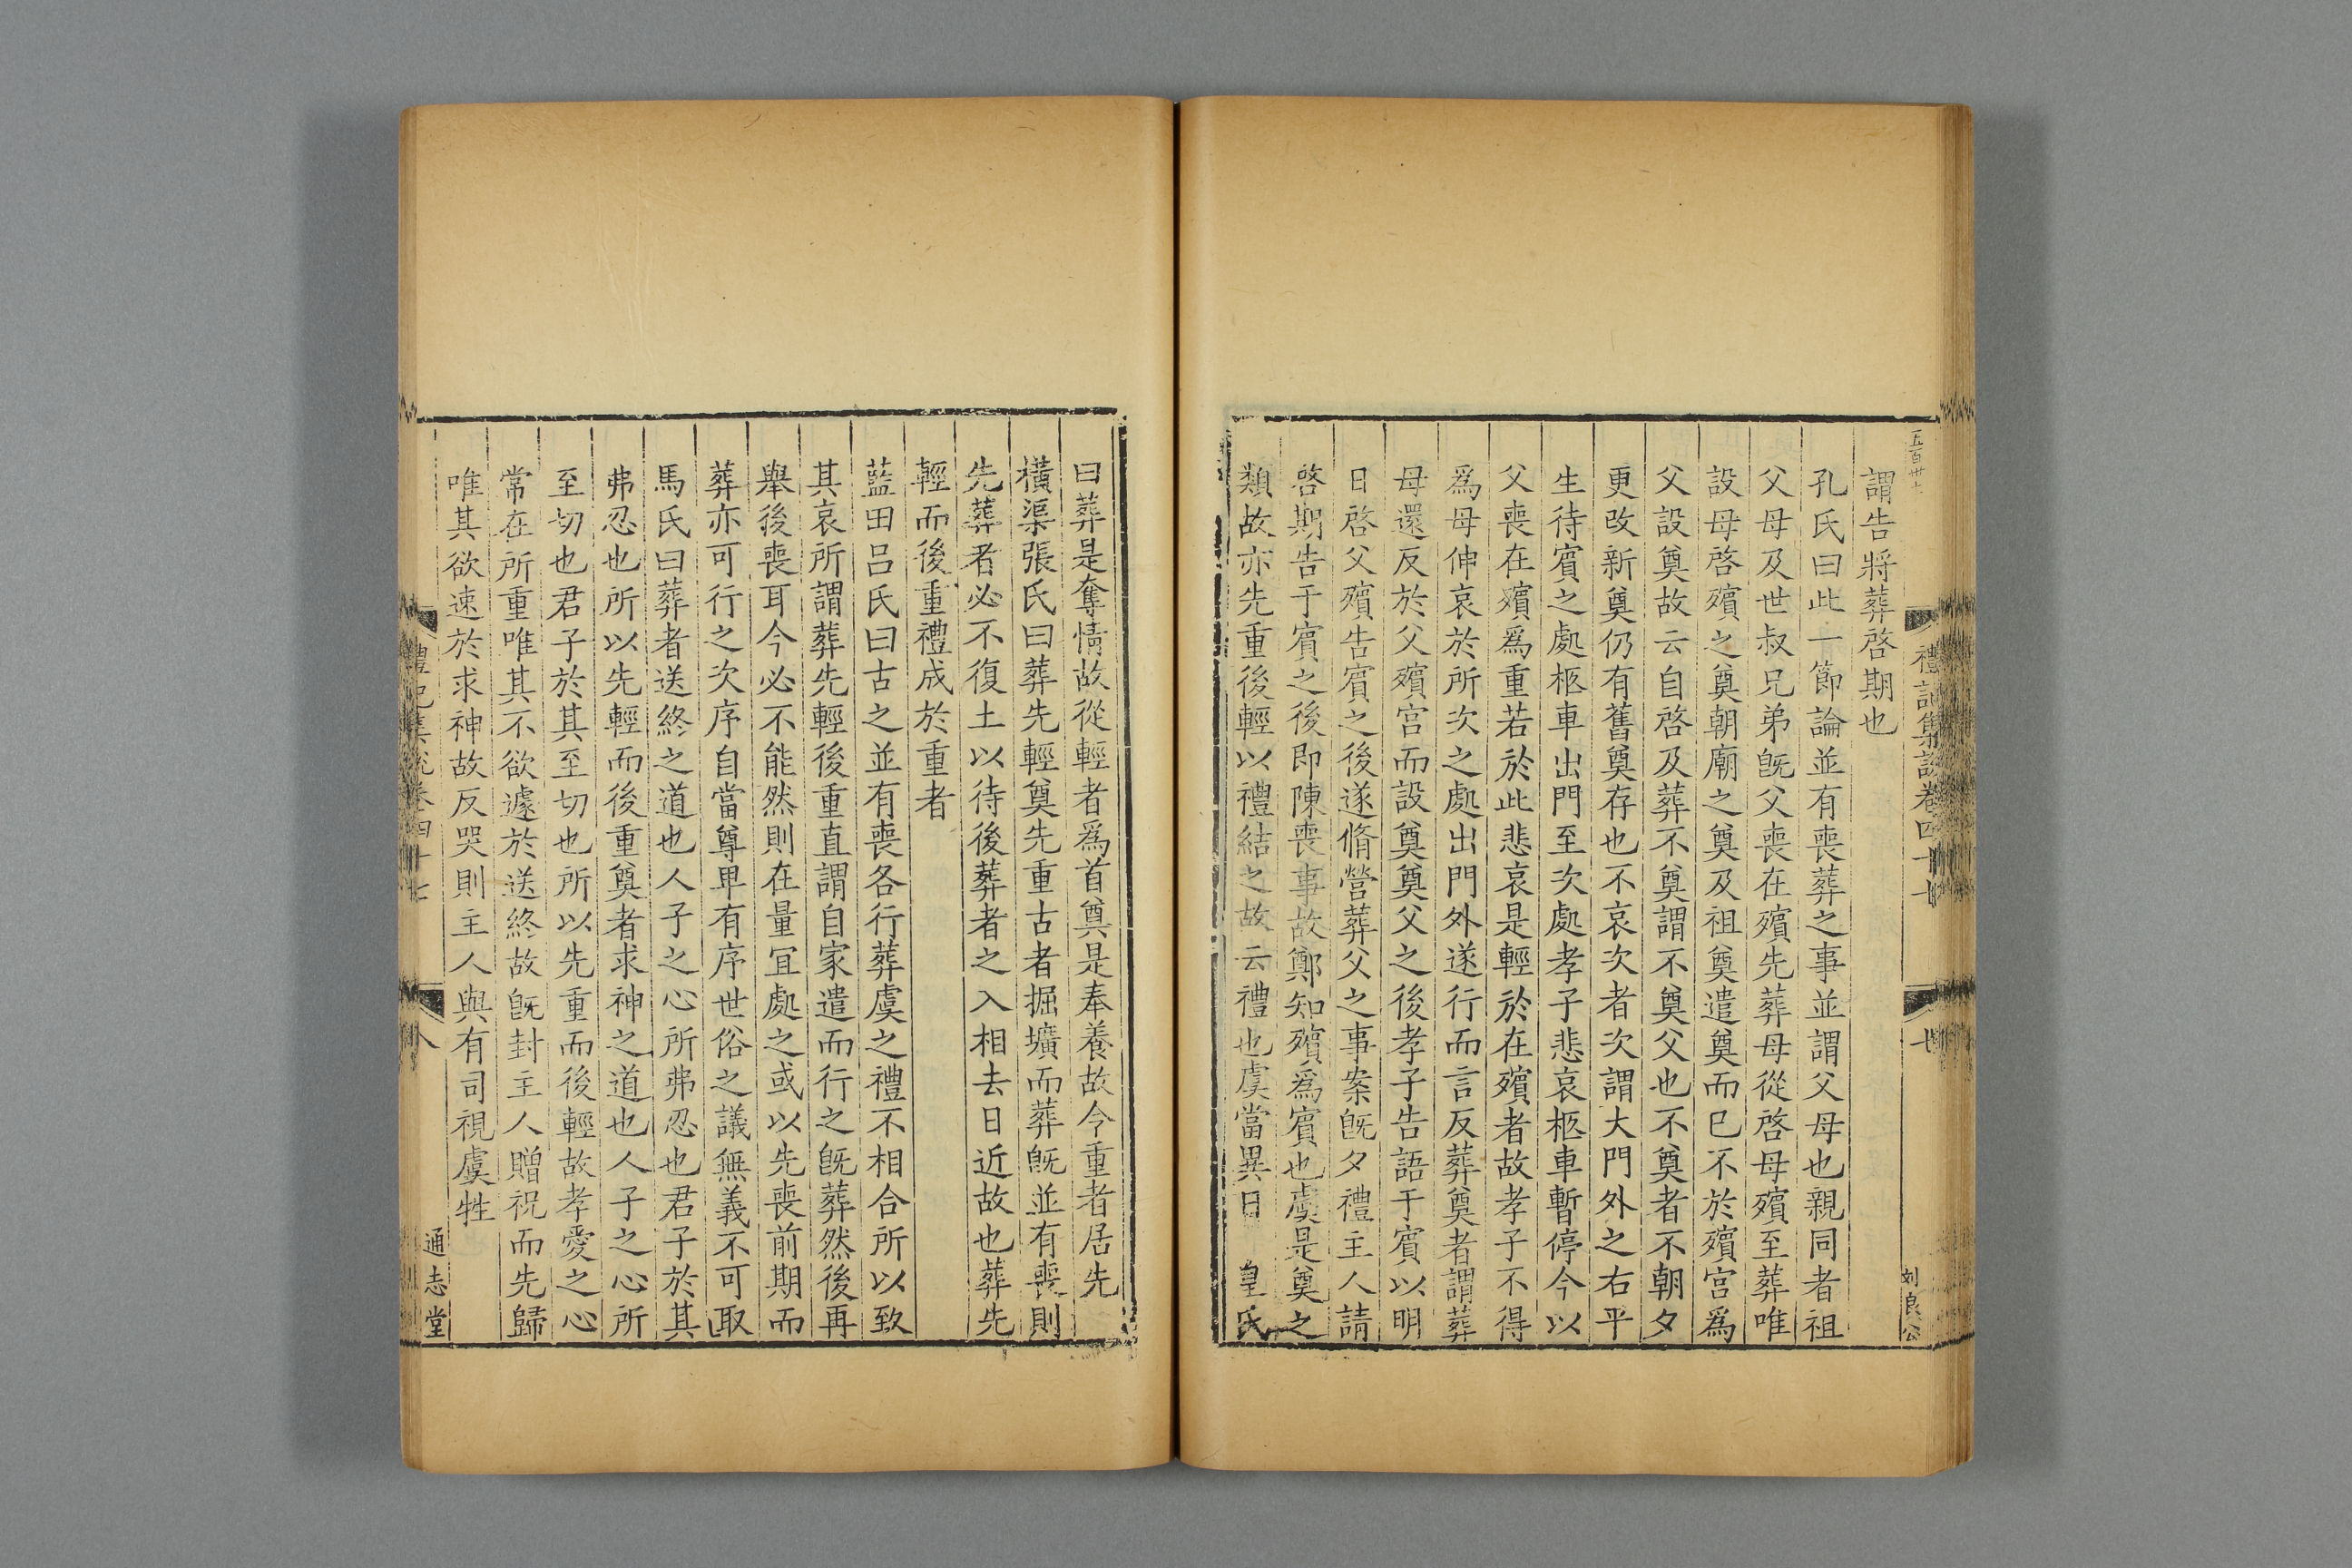 禮記集說卷四十七
七
刘良公
謂告將葬啓期也
孔氏曰此一節論並有喪葬之事並謂父母也親同者祖
父母及世叔兄弟旣父喪在殯先葬母從啓母殯至葬唯
設母啓殯之奠朝廟之奠及祖奠遣奠而已不於殯宮爲
父設奠故云自啓及葬不奠謂不奠父也不奠者不朝夕
更改新奠仍有舊奠存也不哀次者次謂大門外之右平
生待賓之處柩車出門至次處孝子悲哀柩車暫停今以
父喪在殯爲重若於此悲哀是輕於在殯者故孝子不得
爲母伸哀於所次之處出門外遂行而言反葬奠者謂葬
母還反於父殯宮而設奠奠父之後孝子告語于賓以明
日啓父殯告賓之後遂脩營葬父之事案旣夕禮主人請
啓期告于賓之後即陳喪事故鄭知殯爲賓也虞是奠之
類故亦先重後輕以禮結之故云禮也虞當異日 皇氏
曰葬是奪情故從輕者爲首奠是奉養故今重者居先
橫渠張氏曰葬先輕奠先重古者掘壙而葬旣並有喪則
先葬者必不復土以待後葬者之入相去日近故也葬先
輕而後重禮成於重者
藍田呂氏曰古之並有喪各行葬虞之禮不相合所以致
其哀所謂葬先輕後重直謂自家遣而行之旣葬然後再
舉後喪耳今必不能然則在量宜處之或以先喪前期而
葬亦可行之次序自當尊卑有序世俗之議無義不可取
馬氏曰葬者送終之道也人子之心所弗忍也君子於其
弗忍也所以先輕而後重奠者求神之道也人子之心所
至切也君子於其至切也所以先重而後輕故孝愛之心
常在所重唯其不欲遽於送終故旣封主人贈祝而先歸
唯其欲速於求神故反哭則主人與有司視虞牲
禮記集說卷四十七
八
通志堂